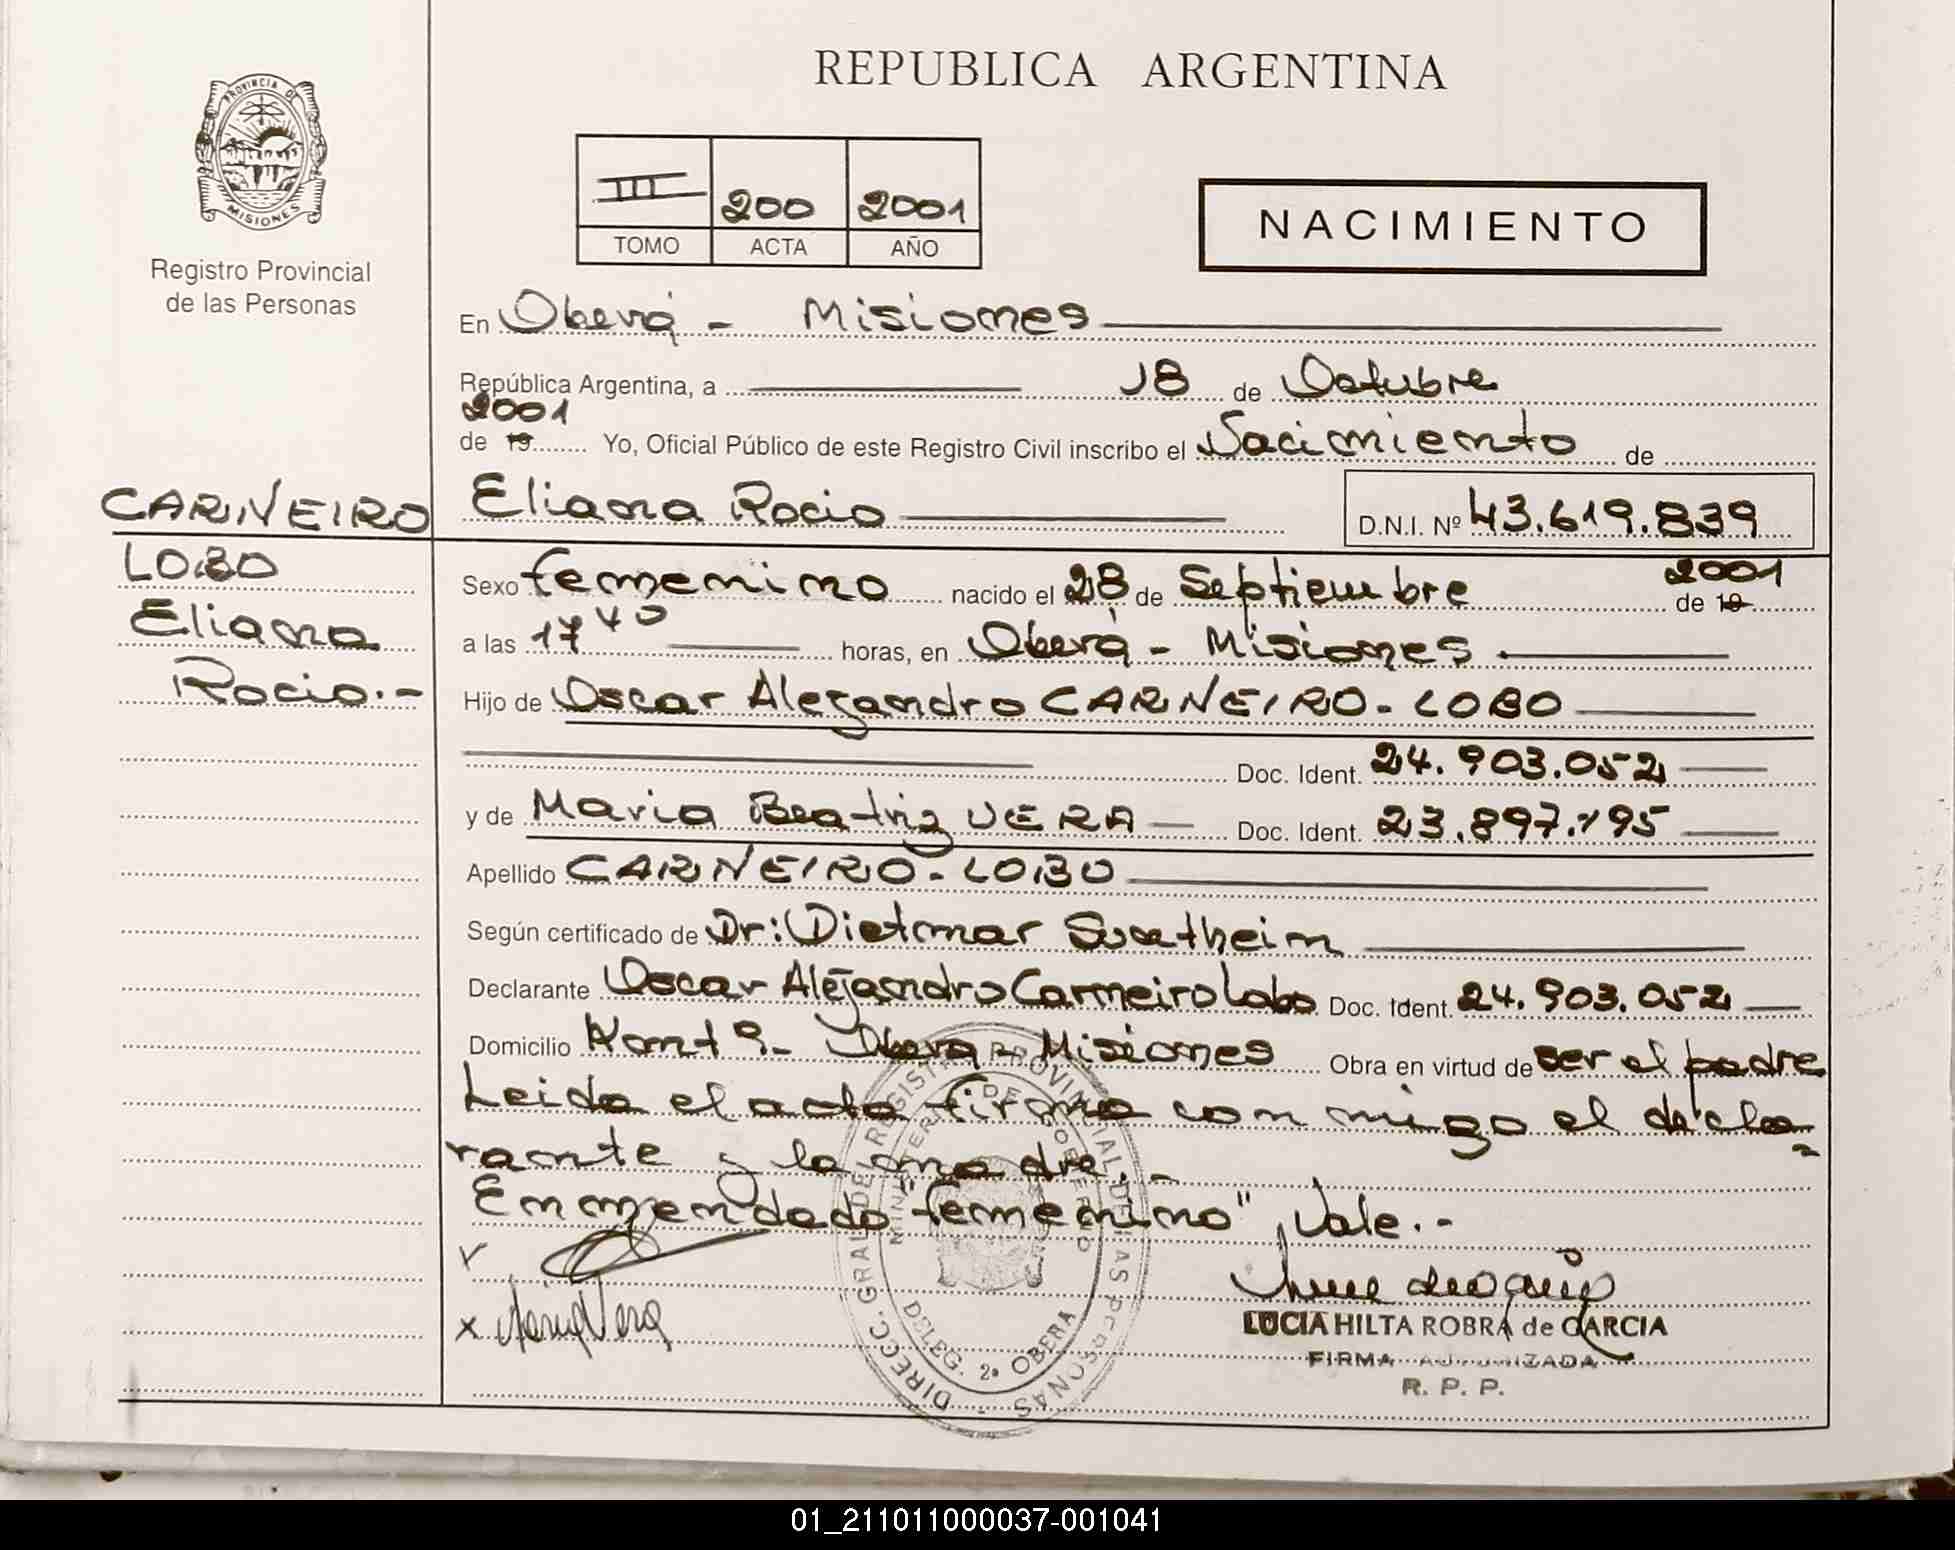 REPUBLICA ARGENTINA
PROVINCIA DE
MISIONES
Registro Provincial
de las Personas
III 200 2001
TOMO ACTA AÑO
NACIMIENTO
En Oberá - Misiones
República Argentina, a 18 de Octubre
2001
de 19 Yo, Oficial Público de este Registro Civil inscribo el Nacimiento de
CARNEIRO
LOBO
Eliana
Rocio.-
Eliana Rocio D.N.I. Nº 43.619.839
Sexo femenino nacido el 28 de Septiembre de 19 2001
a las 17 40 horas, en Oberá - Misiones
Hijo de Oscar Alejandro CARNEIRO - LOBO
Doc. Ident. 24.903.052
y de Maria Beatriz VERA Doc. Ident. 23.897.195
Apellido CARNEIRO - LOBO
Según certificado de Dr: Dietmar
Declarante Oscar Alejandro Carneiro Lobo Doc. Ident. 24.903.052
Domicilio Oberá - Misiones Obra en virtud de ser el padre
Leida el acta firma con migo el decla-
rante y la madre.-
Enmendado "femenino", Vale.-
DIRECC. GRAL DEL REGISTRO PROVINCIAL DE LAS PERSONAS
MINISTERIO DE GOBIERNO
DELEG. 2ª OBERA
x Maria Vera
LUCIA HILTA ROBRA de GARCIA
FIRMA AUTORIZADA
R. P. P.
01_211011000037-001041